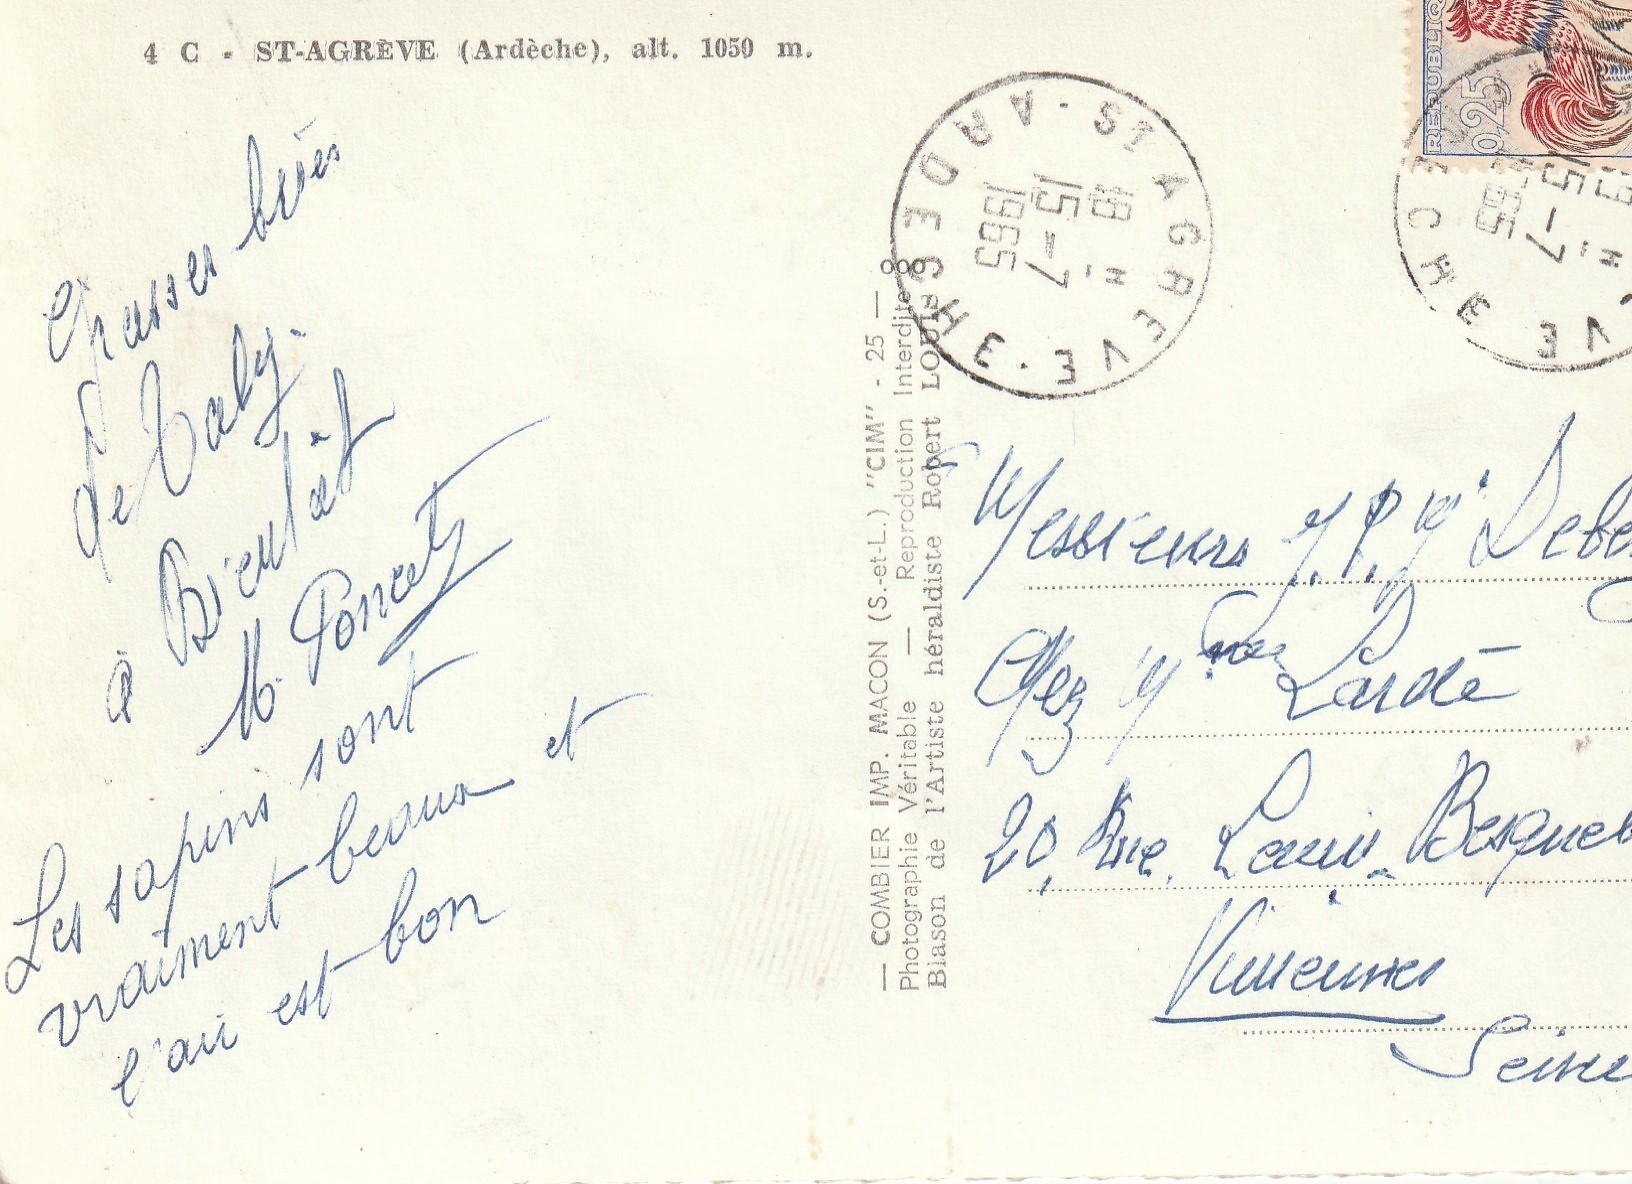 4 C - ST-AGRÈVE (Ardèche), alt. 1050 m.
bisés
de Taby.
à Bientôt
M. Poncetz
Les sapins sont
vraiment beaux et
l'air est bon
— COMBIER IMP. MACON (S.-et-L.) "CIM" - 25 —
Photographie Véritable — Reproduction Interdite
Blason de l'Artiste héraldiste Robert LOUIS
ST AGREVE · ARDECHE ·
18 H
15 -7
1965
REPUBLIQ
0,25
CHE VE
19 H
15 -7
1965
Messieurs J.P. M
Chez Mme Lardé
20, Rue Louis Besquel
Vincennes
Seine